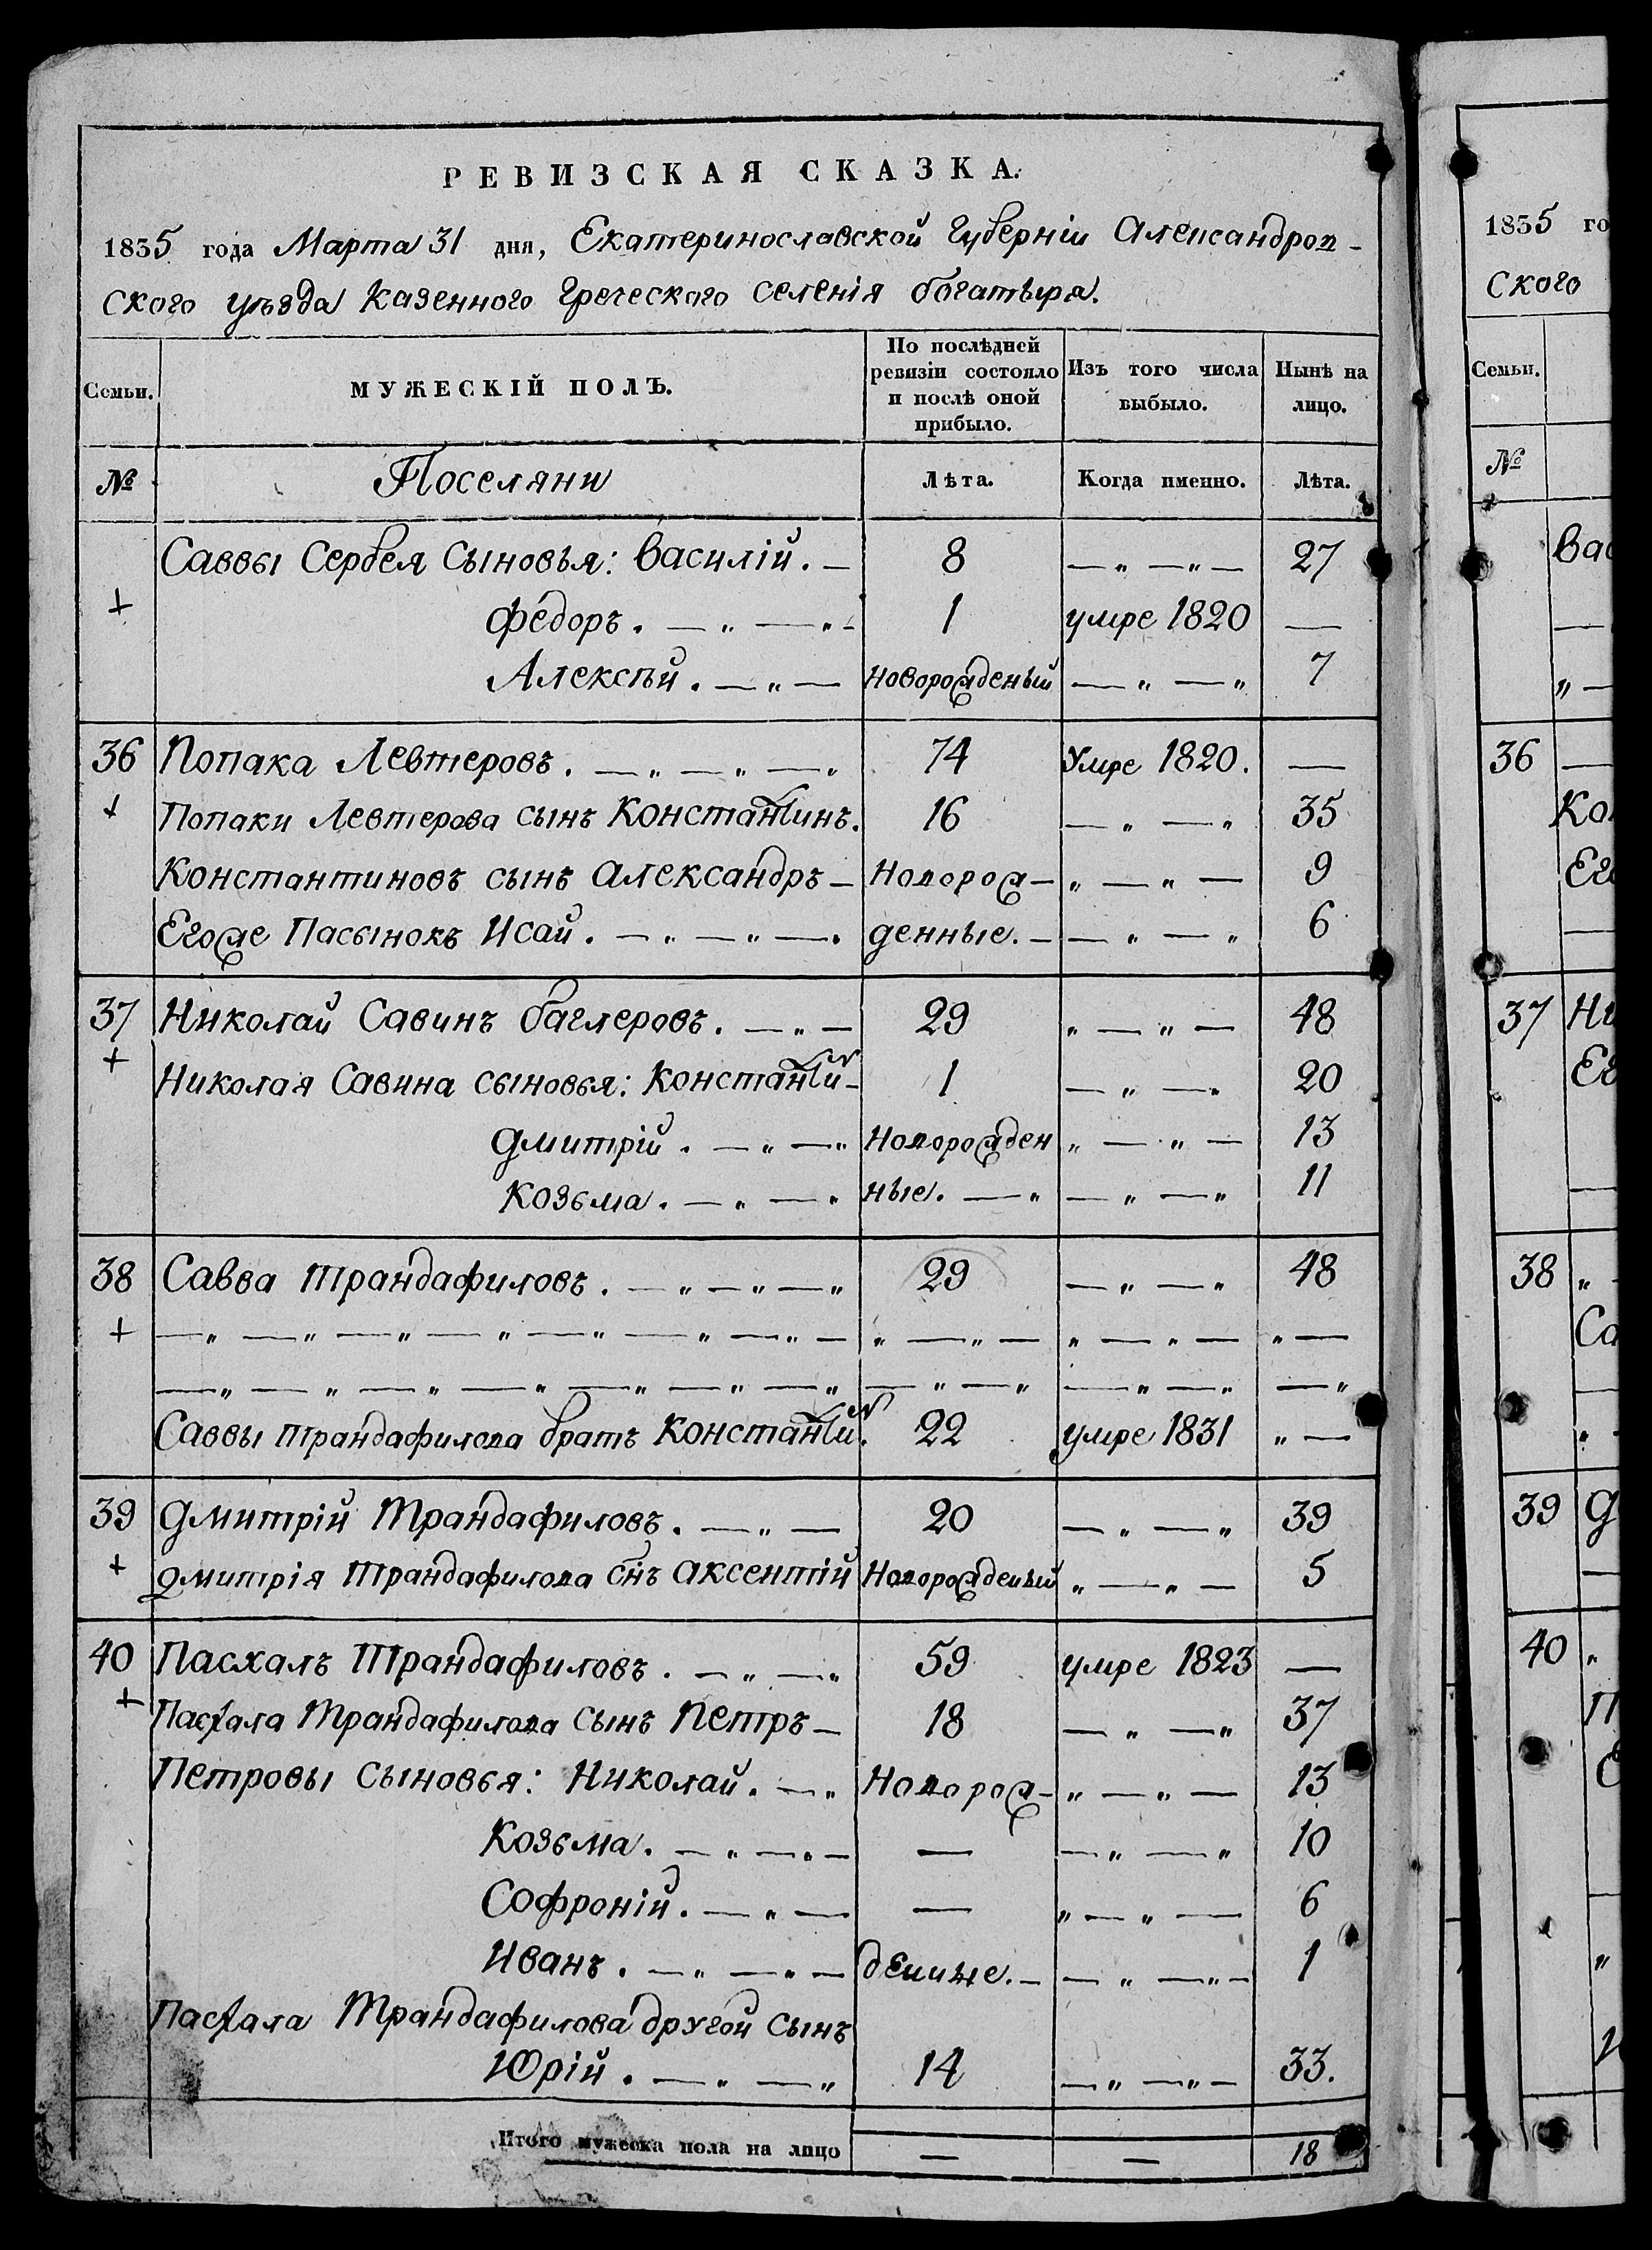 РЕВИЗСКАЯ СКАЗКА.
1835 года Марта 31 дня, Екатеринославской Губерніи Александров-
ского уѣзда Казенного Греческого селенія богатыря.
Семьи. МУЖЕСКІЙ ПОЛЪ. По послѣдней ревизіи состояло и послѣ оной прибыло. Изъ того числа выбыло. Нынѣ на лицо.
№ Поселяни Лѣта. Когда именно. Лѣта.
Саввы Сербея Сыновья: Василій. — 8 — „ — „ — 27
+ Федоръ. — „ — „ - 1 умре 1820 —
Алексѣй. — „ — Новорожденый — „ — „ 7
36 Попака Левтеровъ. — „ — „ — „ 74 Умре 1820. —
+ Попаки Левтерова сынъ Константинъ. 16 — „ — „ 35
Константиновъ сынъ Александръ — Новорож- „ — „ — 9
Егоже Пасынокъ Исай. — „ — „ — „ денные. — — „ — „ 6
37 Николай Савинъ баглеровъ. — „ — 29 „ — „ — 48
+ Николая Савина сыновья: Константин- 1 — „ — „ 20
Дмитрій. — „ — „ Новорожден „ — „ — 13
Козьма. — „ — „ ные. — „ — „ — „ 11
38 Савва Трандафиловъ. — „ — „ — „ 29 — „ — „ 48
+ — „ — „ — „ — „ — „ — „ — „ — „ — „ — „ — „ — „ —
— „ — „ — „ — „ — „ — „ — „ — „ — „ — „ — „ — „
Саввы Трандафилова братъ Константин. 22 умре 1831 „ —
39 Дмитрій Трандафиловъ. — „ — 20 — „ — „ 39
+ Дмитрія Трандафилова снъ Аксентій Новорожденый „ — „ — 5
40 Пасхалъ Трандафиловъ. — „ — „ 59 умре 1823 —
+ Пасхала Трандафилова Сынъ Петръ — 18 — „ — „ 37
Петровы Сыновья: Николай. — „ Новорож- „ — „ — 13
Козьма. — „ — „ — — — „ — „ 10
Софроній. — „ — — „ — „ — 6
Иванъ. — „ — „ — деные. — — „ — „ — 1
Пасхала Трандафилова другой Сынъ
Юрій. — „ — „ 14 — „ — „ — 33.
Итого мужеска пола на лицо — — 18
1835 го
ского
Семьи.
№
Вас
—
„ —
36 —
Ко
Его
—
37 Ни
Ег
—
38 „
Са
—
„
39 Д
—
40 „
П
—
„